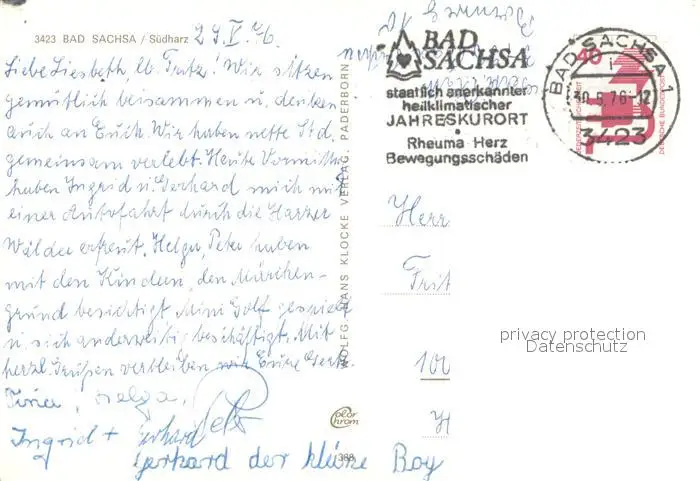 3423 BAD SACHSA / Südharz 29.V.76.
Liebe Liesbeth, lb. Fritz! Wir sitzen
gemütlich beisammen u. denken
auch an Euch. Wir haben nette Std.
gemeinsam verlebt. Heute Vormitt.
haben Ingrid u. Gerhard mich mit
einer Autofahrt durch die Harzer
Wälder erfreut. Helga, Peter haben
mit den Kindern, den Märchen-
grund besichtigt Mini Golf gespielt
u. sich anderweitig beschäftigt. Mit
herzl. Grüßen verbleiben wir Eure
Helga, Peter
Ingrid + Gerhard
Gerhard der kleine Boy
WOLFG. HANS KLOCKE VERLAG, PADERBORN
color
chrom
388
BAD
SACHSA
staatlich anerkannter
heilklimatischer
JAHRESKURORT
Rheuma Herz
Bewegungsschäden
BAD SACHSA 1
i
-12
3423
40
DEUTSCHE BUNDESPOST
Herr
Frit
100
H
privacy protection
Datenschutz